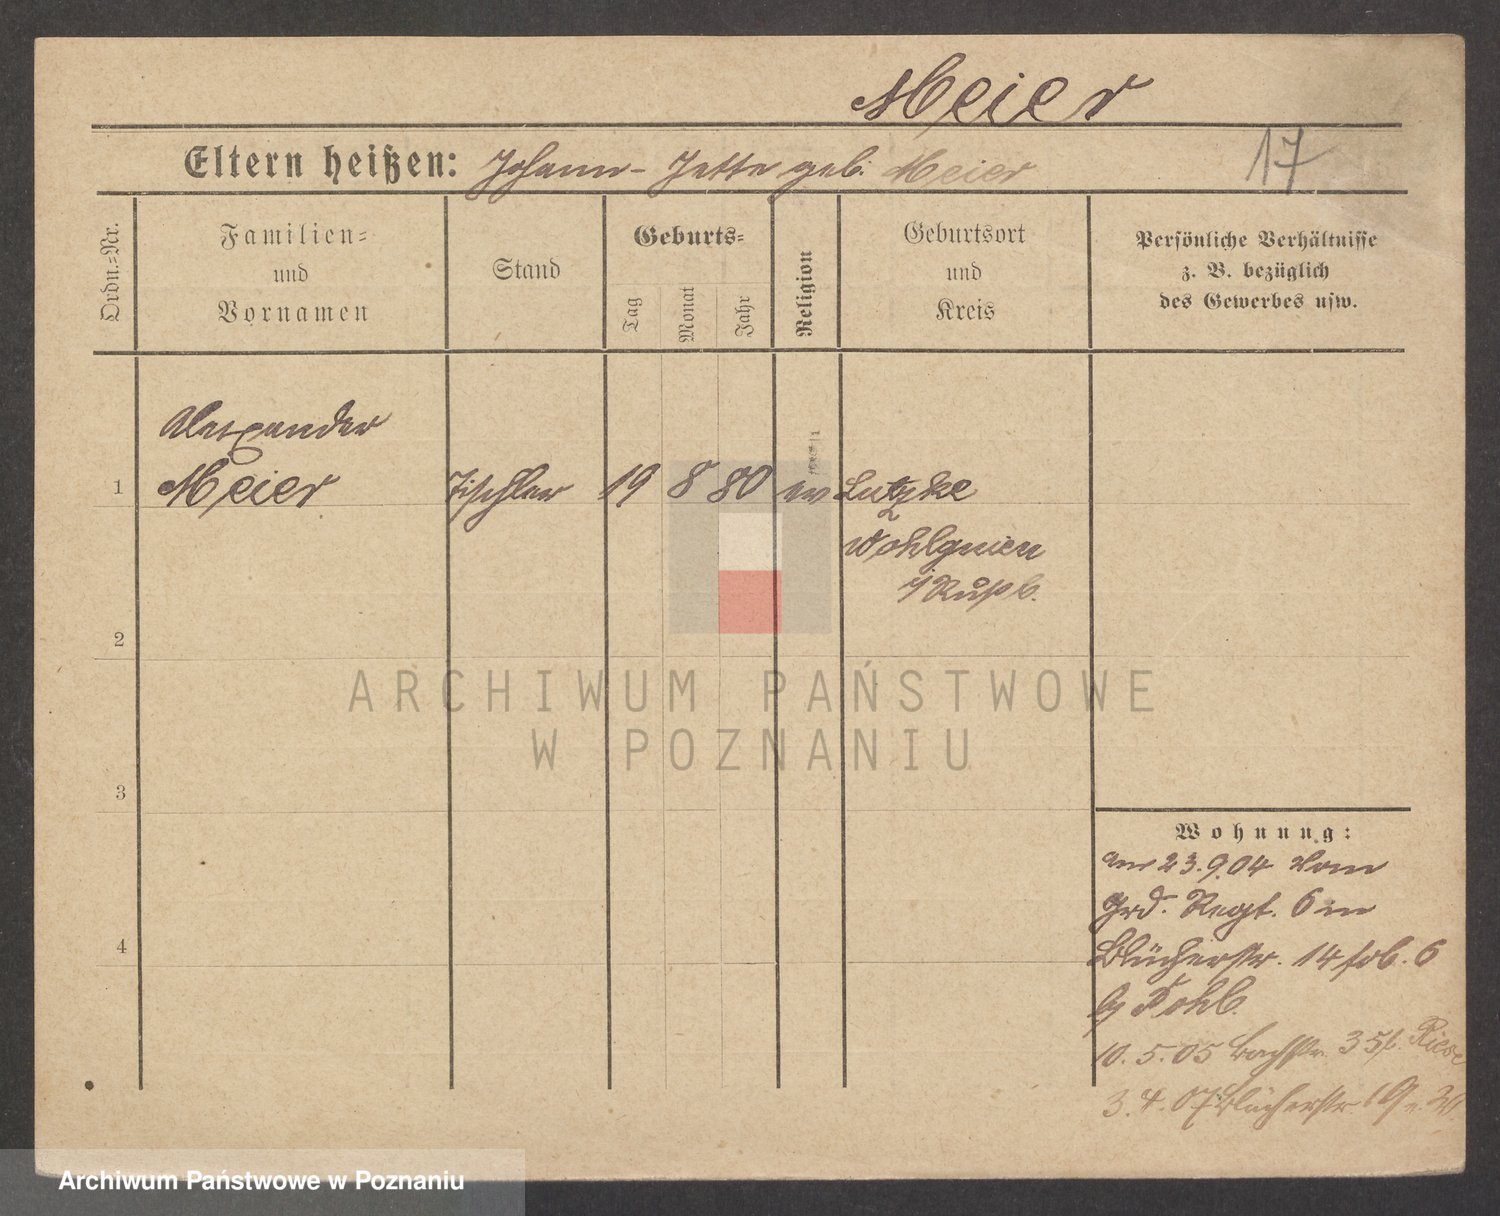 Meier
Eltern heißen: Johann - Jette geb. Meier
17
Ordn.-Nr.
Familien-
und
Vornamen
Stand
Geburts-
Tag
Monat
Jahr
Religion
Geburtsort
und
Kreis
Persönliche Verhältnisse
z. B. bezüglich
des Gewerbes usw.
Alexander
1 Meier Tischler 19 8 80 ev Lutzke
i/ Rußl.
2
3
4
Wohnung:
am 23.9.04 vom
Grd. Regt. 6 in
Blücherstr. 14 6
b/
10. 5. 05 Bachstr. 35
3. 4. 07 Blücherstr. 19
ARCHIWUM PAŃSTWOWE
W POZNANIU
Archiwum Państwowe w Poznaniu